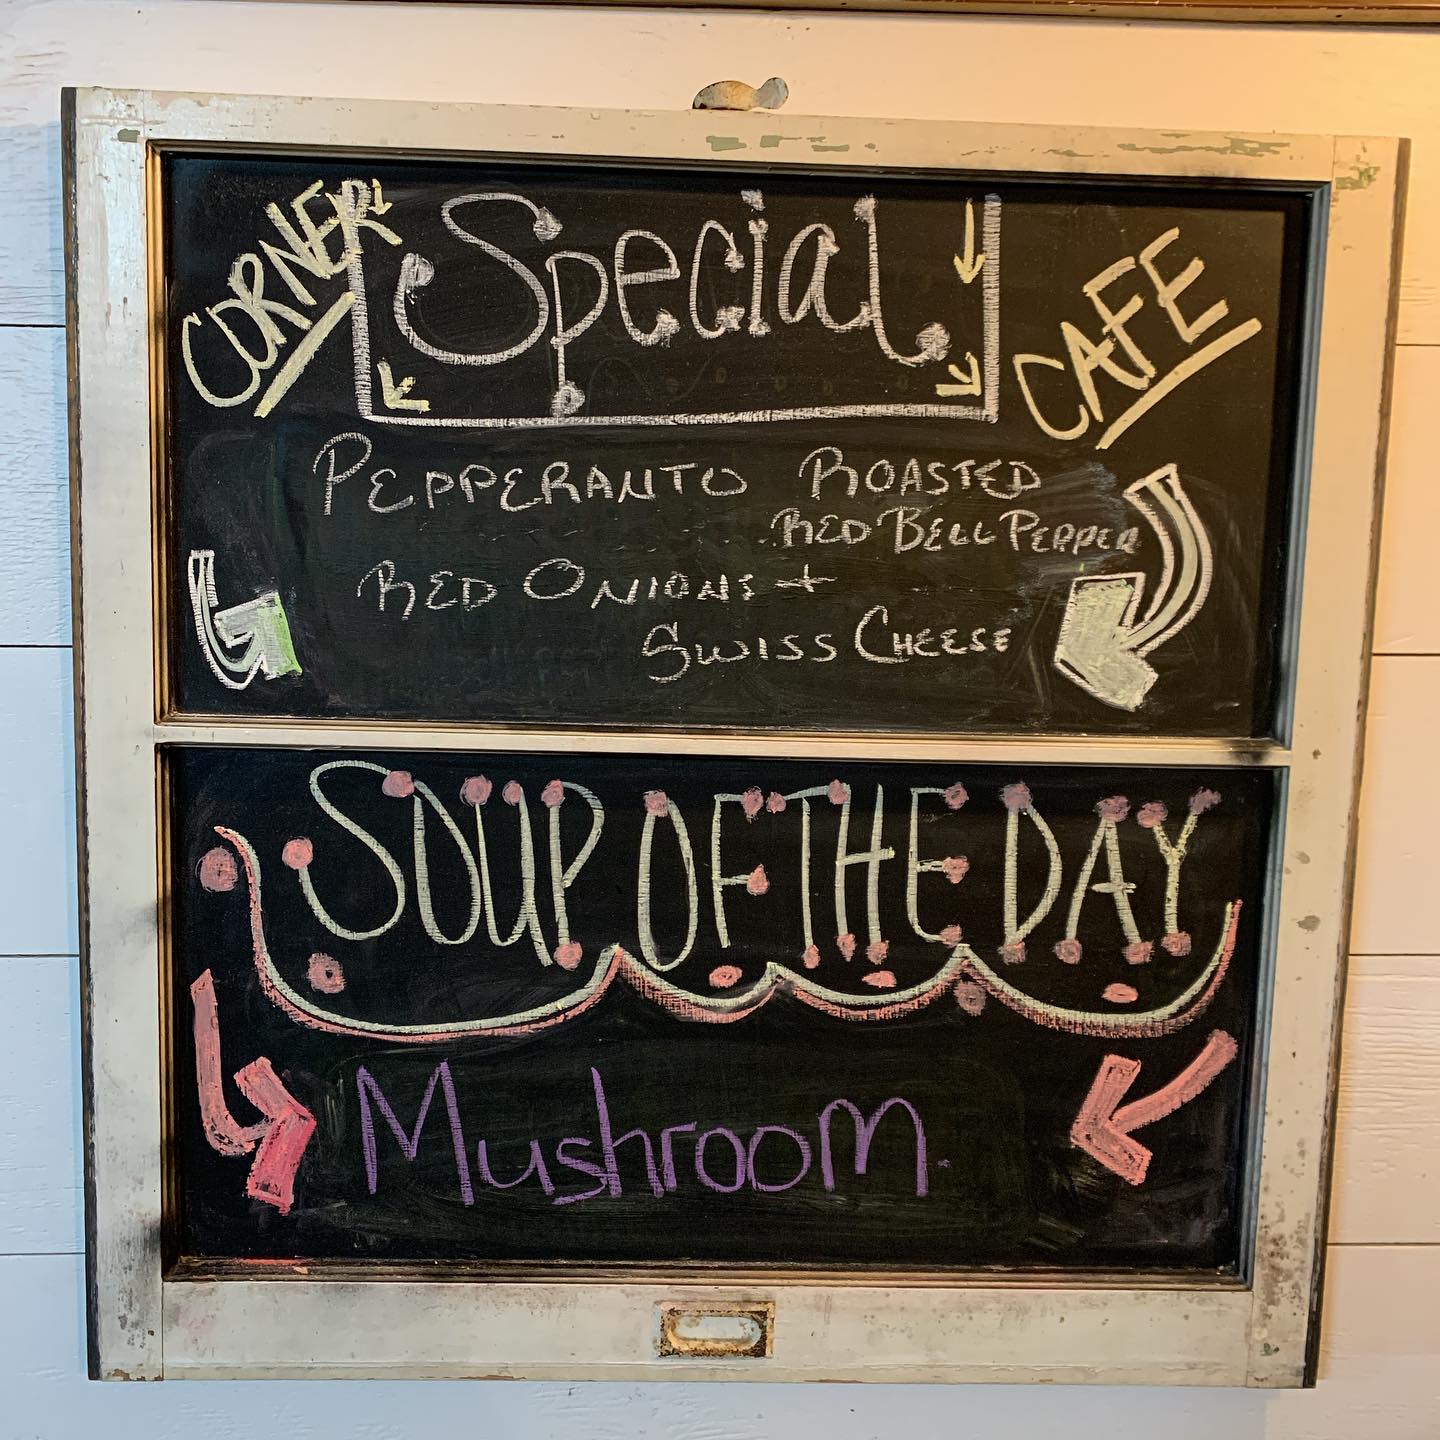 CORNER Special CAFE
PEPPERANTO ROASTED
RED BELL PEPPER
RED ONIONS +
SWISS CHEESE
SOUP OF THE DAY
Mushroom.